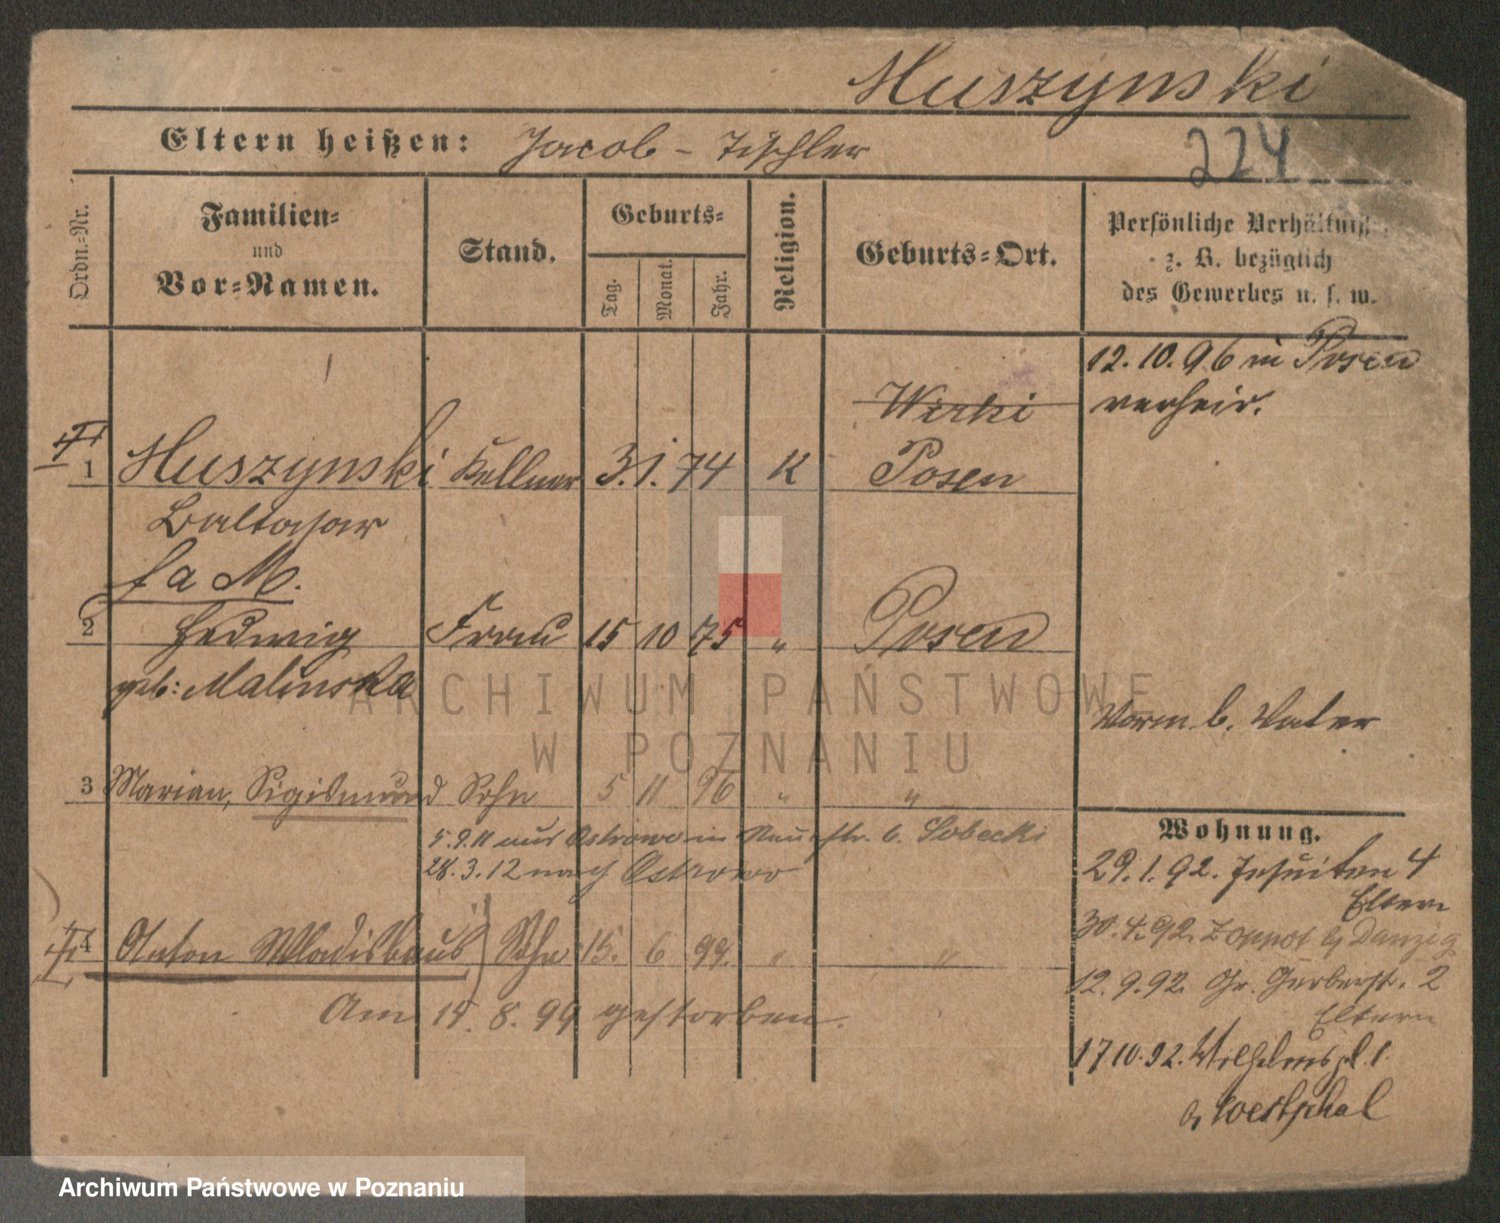 Muszynski
Eltern heißen: Jacob - Tischler
224
Ordn.-Nr.
Familien- und Vor-Namen.
Stand.
Geburts-
Tag. Monat. Jahr.
Religion.
Geburts-Ort.
Persönliche Verhältnisse
z. B. bezüglich
des Gewerbes u. s. w.
12.10.96 in Posen
verheir.
1 Muszynski Kellner 3. 1. 74 K Posen
Baltasar
2 Hedwig Frau 15 10 75 " Posen
geb: Malinska
Vorm. b. Vater
3 Marian, Sigismund Sohn 5 11 96 " "
5.9.11 aus Ostrowo in Neue str. b. Sobecki
28.3.12 nach Ostrowo
4 Anton Wladislaus Sohn 15. 6 99. " "
Am 15. 8. 99 gestorben.
Wohnung.
29.1.92. Jesuiten 4
Eltern
30.4.92. Zoppot b/ Danzig
12.9.92. Gr. Gerberstr. 2
Eltern
17 10.92. Wilhelmspl. 1.
b, Westphal
ARCHIWUM PAŃSTWOWE
W POZNANIU
Archiwum Państwowe w Poznaniu